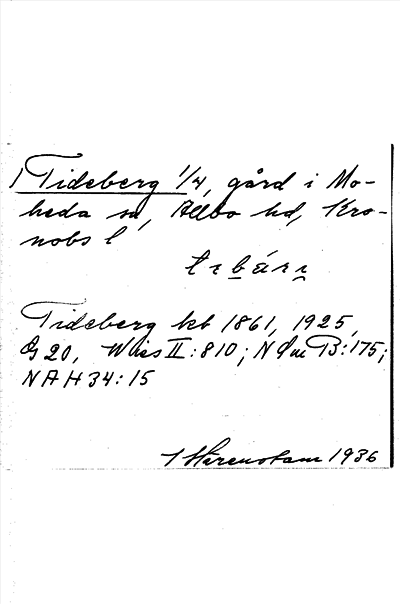 Tideberg 1/4, gård i Mo-
heda sn, Allbo hd, Kro-
nobs l
Tideberg kb 1861, 1925,
G 20, Wies II:810; N Sm B:175;
NAH 34:15
Härenstam 1936